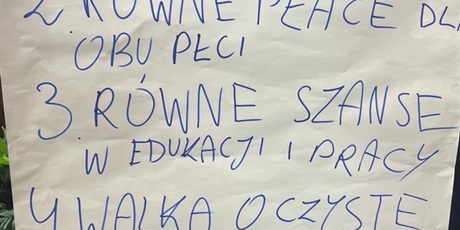 2 RÓWNE PŁACE DLA
OBU PŁCI
3. RÓWNE SZANSE
W EDUKACJI I PRACY
4 WALKA O CZYSTE